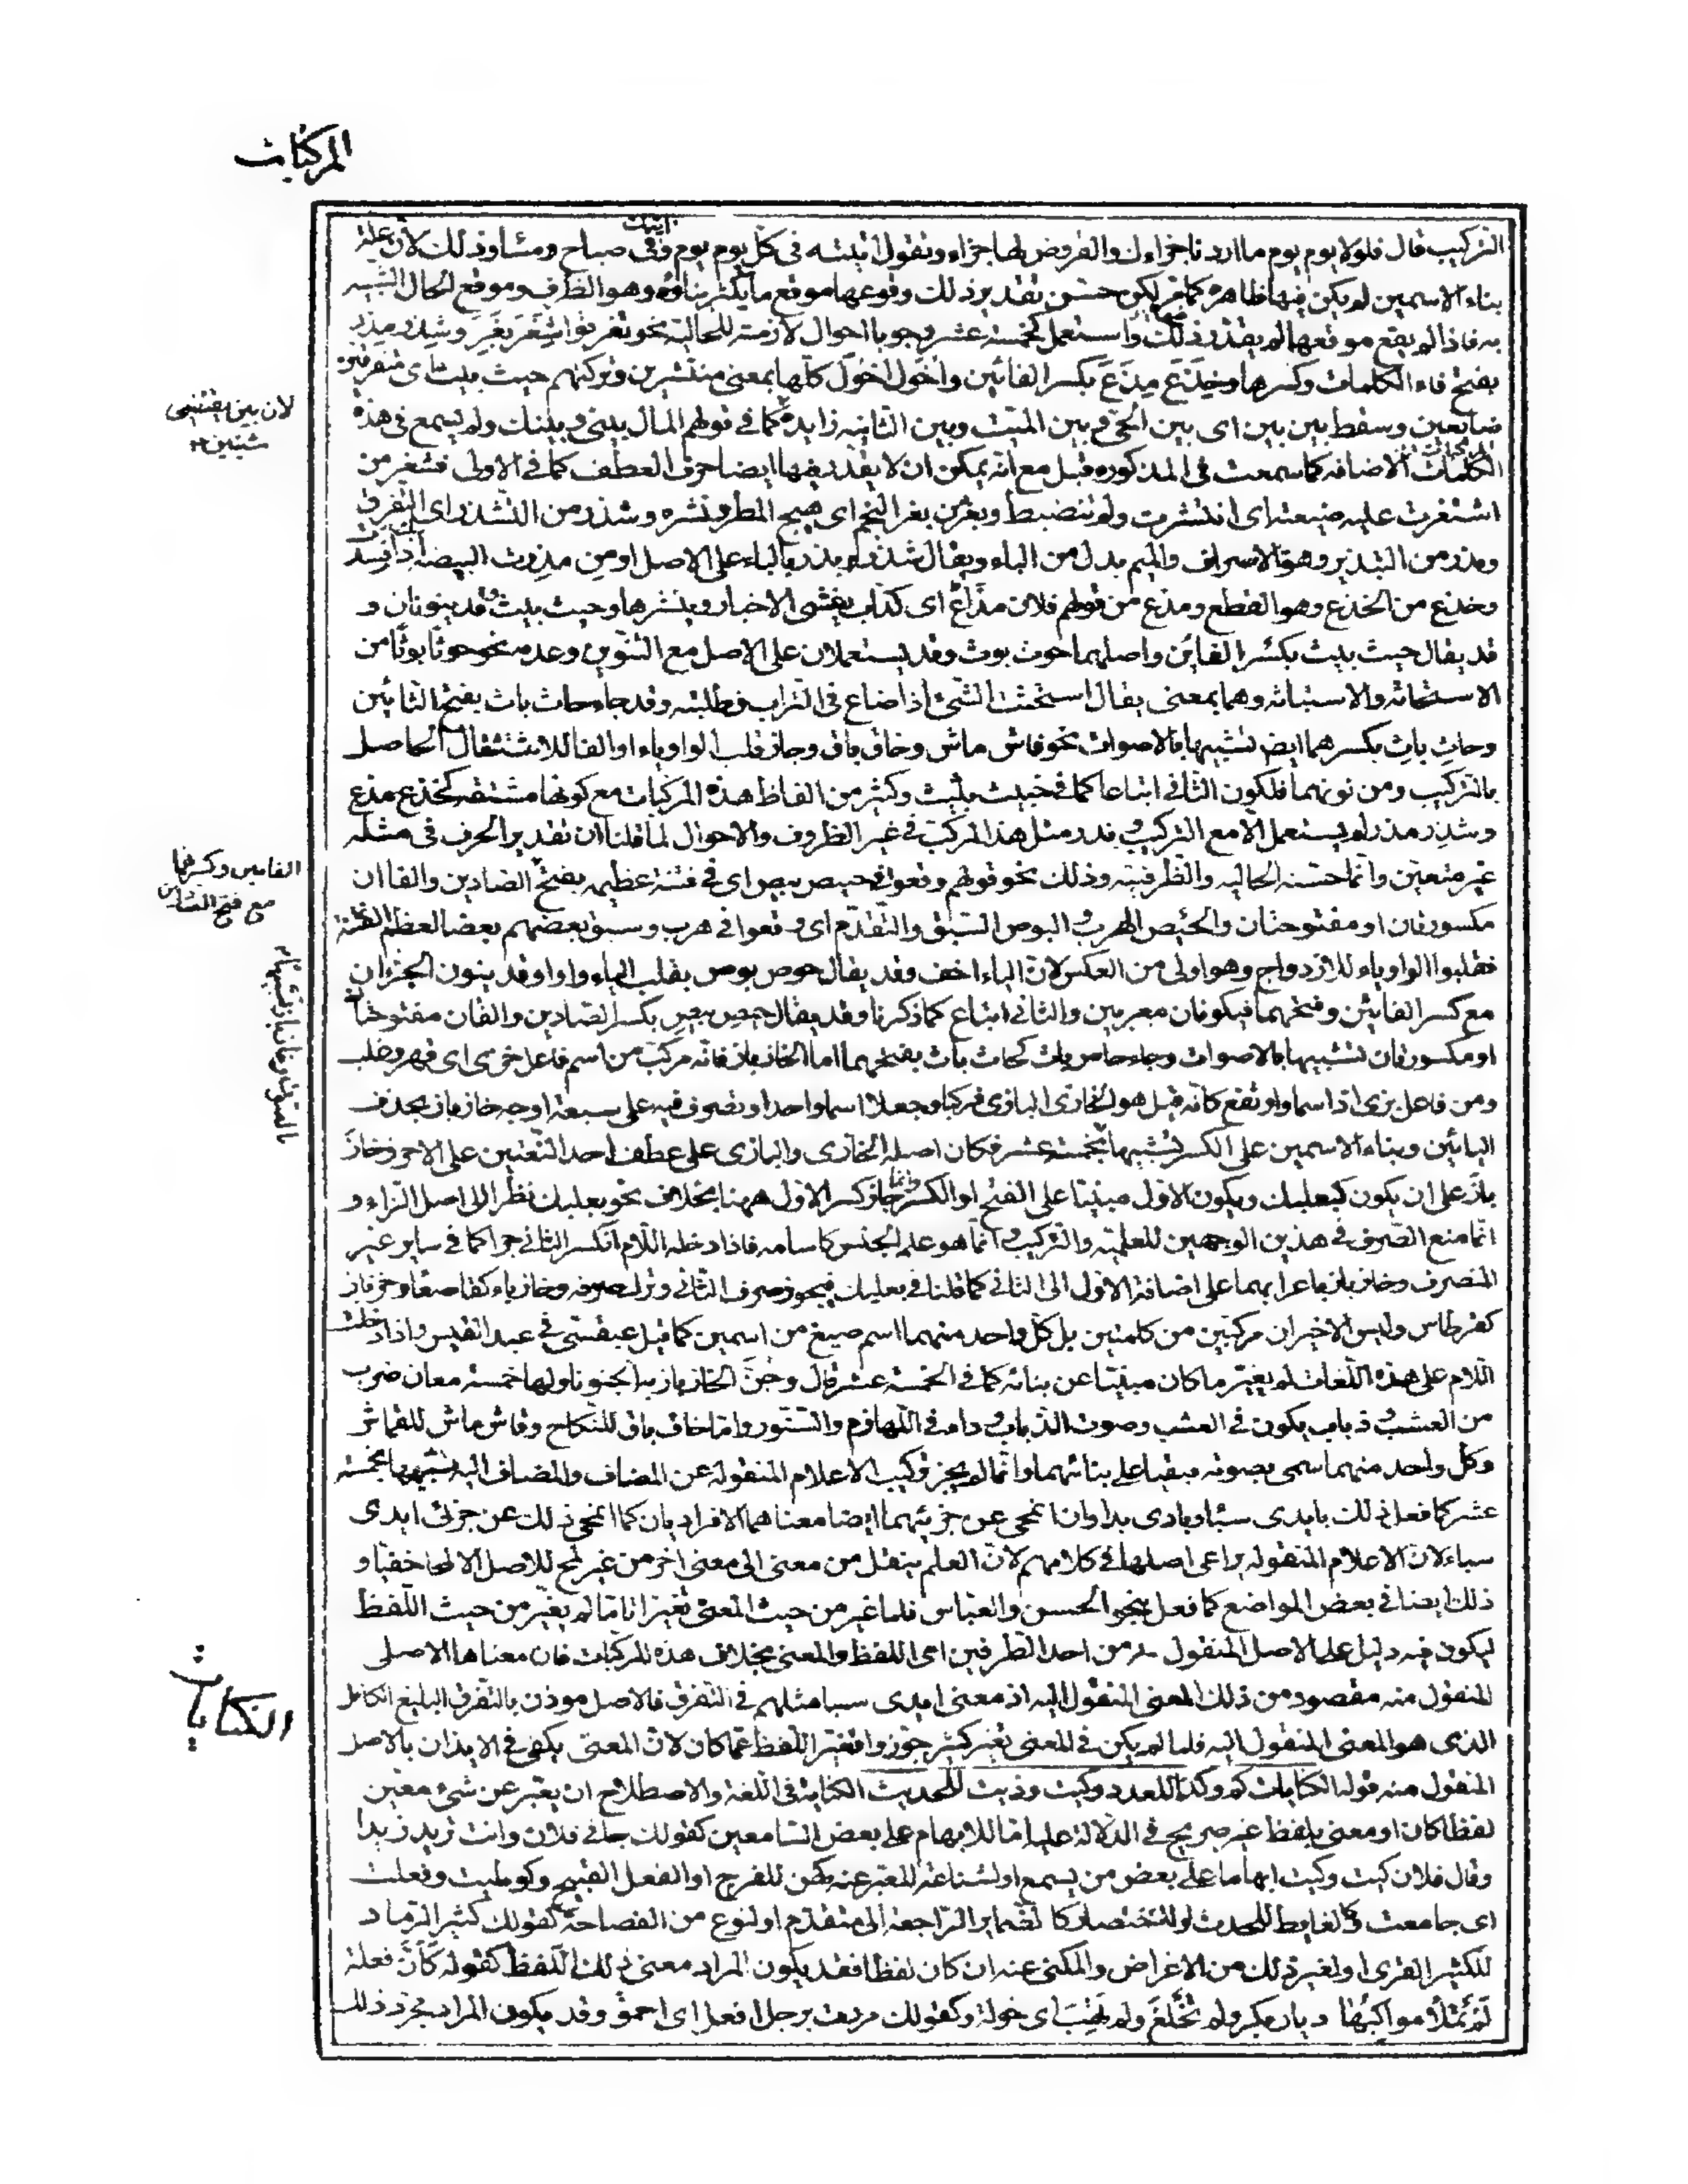 المركبات
التركيب قال فلولا يوم يوم ما اردنا جزاءك والقروض لها جزاء وتقول اتيته فى كل يوم يوم وفى صباح ومساء وذلك لان علة
بناء الاسمين لم يكن فيها ظاهرة كما مر لكن حسن تقدير ذلك وقوعها موقع ما يكثر بناؤه وهو الظرف وموقع الحال الشبيه
به فاذا لم يقع موقعهما لم يقدر ذلك واستعمل كخمسة عشر وجوبا احوال لازمة للحالية نحو تفرقوا شِغَرَ بِغَرَ وشذر مذر
بفتح فاء الكلمات وكسرها وخِذَعَ مِذَعَ بكسر الفائين واَخْوَلَ اَخْوَلَ كلها بمعنى منتشرين وتركتهم حيث بيث اى متفرقين
ضايعين وسقط بين بين اى بين الحى وبين الميت وبين الثانيه زايدة كما فى قولهم المال بينى وبينك ولم يسمع فى هذه
لان بين يقتضى
شيئين
الكلمات الاضافه كما سمعت فى المذكوره قبل مع انه يمكن ان لا يقدر فيها ايضا حرف العطف كما فى الاولى فشغر من
اشتغرت عليه ضيعته اى انتشرت ولم تنضبط وبغر من بغر النجم اى هيج المطر ونشره وشذر من التشذر اى التفرق
ومذر من التبذير وهو الاسراف والميم بدل من الباء ويقال شذر بذر بالباء على الاصل او من مذرت البيضة اذا فسدت
وخذع من الخذع وهو القطع ومذع من قولهم فلان مذّاع اى كذاب يفشى الاخبار وينشرها وحيث بيث وقد ينونان و
قد يقال حيث بيث بكسر الفائين واصلهما حوث بوث وقد يستعملان على الاصل مع التنوين وعدمه نحو حوثا بوثا من
الاستحاثه والاستباثه وهما بمعنى يقال استحثت الشئ اذا ضاع فى التراب فطلبته وقد جاء حاث باث بفتح الثائين
وحاثِ باثِ بكسرهما ايض تشبيها بالاصوات نحو قاش ماش وخاق باق وجاز قلب الواو ياء او الفا للاستثقال الحاصل
بالتركيب ومن نونهما فلكون الثانى اتباعا كما فى خبيث بليث وكثر من الفاظ هذه المركبات مع كونها مشتقه كخذع مذع
وشذر مذر لم يستعمل الا مع التركيب وندر مثل هذا المركب فى غير الظروف والاحوال لما قلنا ان تقدير الحرف فى مثله
غير متعين وانما حسنه الحاليه والظرفيه وذلك نحو قولهم وقعوا فى حيص بيص اى فى فتنة عظيمه بفتح الصادين والفاان
الفائين وكسرهما
مع فتح الصادين
مكسورتان او مفتوحتان والحيص الهرب والبوص السبق والتقدم اى وقعوا فى هرب وسبق بعضهم بعضا لعظم الفتنة
فقلبوا الواو ياء للازدواج وهو اولى من العكس لان الياء اخف وقد يقال حوص بوص بقلب الياء واوا وقد ينون الجزءان
بالتنوين
مع كسر الفائين وفتحهما فيكونان معربين والثانى اتباع كما ذكرنا وقد يقال حيص بيص بكسر الصادين والفاان مفتوحتان
او مكسورتان تشبيها بالاصوات وجاء حاص باص كحاث باث بفتحهما اما الخاز باز فانه مركب من اسم فاعل خزى اى قهر وغلب
ومن فاعل بزى اذا سما وارتفع كانه قيل هو الخازى البازى فركبا وجعلا اسما واحدا وتصرف فيه على سبعة اوجه خاز باز بحذف
اليائين وبناء الاسمين على الكسر تشبيها بخمسة عشر فكان اصله الخازى والبازى على عطف احد النعتين على الاخر وخازَ
بازُ على ان يكون كبعلبك ويكون الاول مبنيا على الفتح او الكسر وانما جاز كسر الاول ههنا بخلاف نحو بعلبك نظرا الى اصل الزاء و
انما منع الصرف فى هذين الوجهين للعلمية والتركيب وانما هو علم الجنس كاسامه فاذا دخله اللام انكسر الثانى جرا كما فى ساير غير
المنصرف وخاز باز باعرابهما على اضافة الاول الى الثانى كما قلنا فى بعلبك فيجوز صرف الثانى وترك صرفه وخازباء كقاصعاء وخزباز
كقرطاس وليس الاخيران مركبين من كلمتين بل كل واحد منهما اسم صيغ من اسمين كما قيل عبقسى فى عبد القيس واذا دخلت
اللام على هذه اللغات لم يغير ما كان مبنيا عن بنائه كما فى الخمسة عشر قال وجُنَّ الخاز باز به الجنونا ولها خمسة معان ضرب
من العشب وذباب يكون فى العشب وصوت الذباب وداء فى اللهازم والسنور واما خاق باق للنكاح وقاش ماش للقماش
وكل واحد منهما سمى بصوته مبقيا على بنائهما وانما لم يجز تركيب الاعلام المنقولة عن المضاف والمضاف اليه تشبيها بخمسة
عشر كما فعل ذلك بايدى سبا وبادى بدا وان انمحى عن جزئيهما ايضا معناهما الافراديان كما انمحى ذلك عن جزئى ايدى
سباء لان الاعلام المنقوله يراعى اصلها فى كلامهم لان العلم ينقل من معنى الى معنى اخر من غير لمح للاصل الا لمحا خفيا و
ذلك ايضا فى بعض المواضع كما فعل بنحو الحسن والعباس فلما غير من حيث المعنى تغيرا تاما لم يغير من حيث اللفظ
ليكون فيه دليل على الاصل المنقول منه من احد الطرفين اعى اللفظ والمعنى بخلاف هذه المركبات فان معناها الاصلى
المنقول منه مقصود من ذلك المعنى المنقول اليه اذ معنى ايدى سبا مثلهم فى التفرق فالاصل موذن بالتفرق البليغ الكامل
الكنايات
الذى هو المعنى المنقول اليه فلما لم يكن فى المعنى تغير كثير جوزوا تغير اللفظ عما كان لان المعنى يكفى فى الايذان بالاصل
المنقول منه قوله الكنايات كم وكذا للعدد وكيت وذيت للحديث الكناية فى اللغة والاصطلاح ان يعبر عن شئ معين
لفظا كان او معنى بلفظ غير صريح فى الدلالة عليه اما للابهام على بعض السامعين كقولك جاءنى فلان وانت تريد زيدا
وقال فلان كيت وكيت ابهاما على بعض من يسمع او لشناعة المعبر عنه كهن للفرج او الفعل القبيح وكوطيت وفعلت
اى جامعت والغايط للحدث او للاختصار كالضماير الراجعة الى متقدم او لنوع من الفصاحة كقولك كثير الرماد
للكثير القرى او لغير ذلك من الاغراض والمكنى عنه ان كان لفظا فقد يكون المراد معنى ذلك اللفظ كقوله كَأَنَّ فعلة
لَمْ تَمْلَأْ مواكبُها ديار بكر ولم تَخْلَعْ ولم تَهَبِ اى خولة وكقولك مررت برجل افعل اى احمق وقد يكون المراد مجرد ذلك